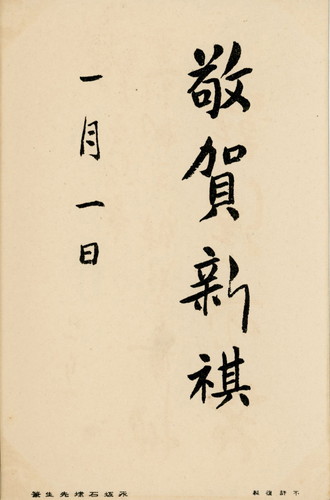 敬賀新祺
一月一日
不許複製
永坂石埭先生筆